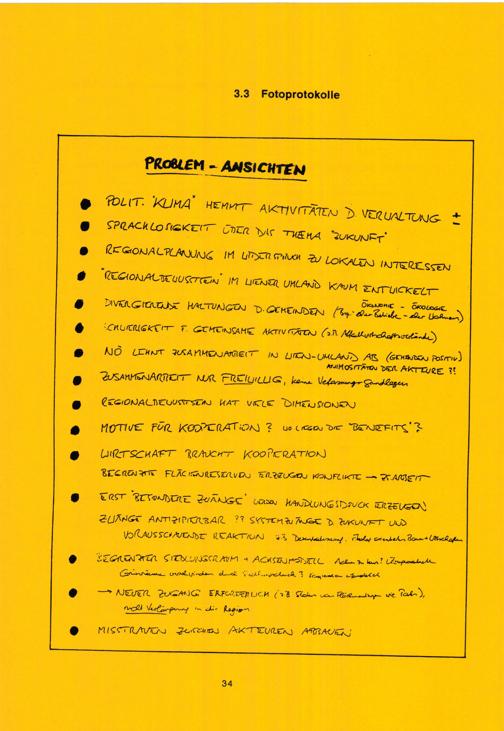 3.3 Fotoprotokolle
PROBLEM - ANSICHTEN
POLIT. "KLIMA" HEMMT AKTIVITÄTEN D. VERWALTUNG ±
SPRACHLOSIGKEIT ÜBER DAS THEMA "ZUKUNFT"
REGIONALPLANUNG IM WIDERSPRUCH ZU LOKALEN INTERESSEN
"REGIONALBEWUSSTSEIN" IM WIENER UMLAND KAUM ENTWICKELT
DIVERGIERENDE HALTUNGEN D. GEMEINDEN
ÖKONOMIE - ÖKOLOGIE
SCHWIERIGKEIT F. GEMEINSAME AKTIVITÄTEN (z.B. Abfallwirtschaftsverbände)
NÖ LEHNT ZUSAMMENARBEIT IN WIEN-UMLAND AB (GEMEINDEN POSITIV)
ANIMOSITÄTEN DER AKTEURE ??
ZUSAMMENARBEIT NUR FREIWILLIG, keine
REGIONALBEWUSSTSEIN HAT VIELE DIMENSIONEN
MOTIVE FÜR KOOPERATION ? WO LIEGEN DIE "BENEFITS" ?
WIRTSCHAFT BRAUCHT KOOPERATION
BEGRENZTE FLÄCHENRESERVEN ERZEUGEN KONFLIKTE → ZS.ARBEIT
ERST "BESONDERE ZWÄNGE" WERDEN HANDLUNGSDRUCK ERZEUGEN
ZWÄNGE ANTIZIPIERBAR ?? SYSTEMZWÄNGE D. ZUKUNFT UND
VORAUSSCHAUENDE REAKTION z.B.
BEGRENZTER SIEDLUNGSRAUM + ACHSENMODELL
→ NEUER ZUGANG ERFORDERLICH (z.B.
nicht in der Region
MISSTRAUEN ZWISCHEN AKTEUREN ABBAUEN
34